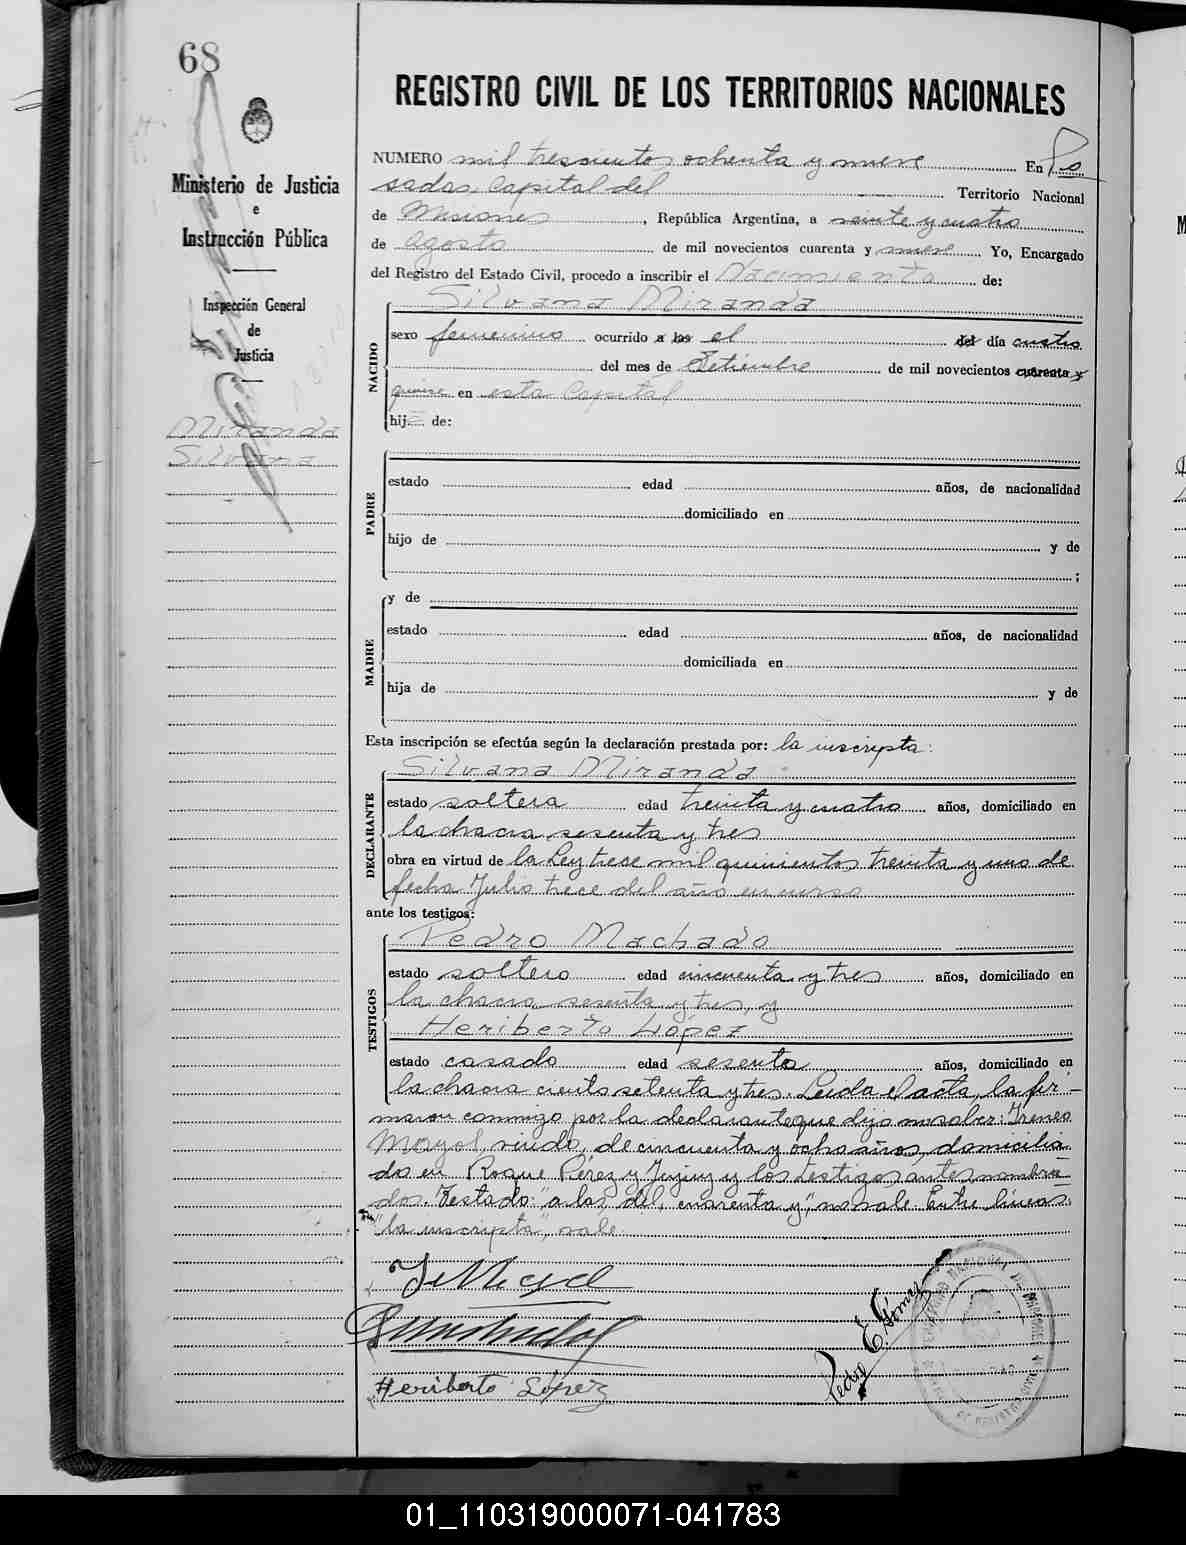 68
REGISTRO CIVIL DE LOS TERRITORIOS NACIONALES
Ministerio de Justicia
e
Instrucción Pública
Inspección General
de
Justicia
Miranda
Silvana
NUMERO mil trescientos ochenta y nueve En Po
sadas, Capital del Territorio Nacional
de Misiones, República Argentina, a veinte y cuatro
de Agosto de mil novecientos cuarenta y nueve Yo, Encargado
del Registro del Estado Civil, procedo a inscribir el Nacimiento de:
NACIDO
Silvana Miranda
sexo femenino ocurrido a las el del día cuatro
del mes de Setiembre de mil novecientos cuarenta y
quince en esta Capital
hij de:
PADRE
estado edad años, de nacionalidad
domiciliado en
hijo de y de
;
MADRE
y de
estado edad años, de nacionalidad
domiciliada en
hija de y de
Esta inscripción se efectúa según la declaración prestada por: la inscripta:
DECLARANTE
Silvana Miranda
estado soltera edad treinta y cuatro años, domiciliado en
la chacra sesenta y tres
obra en virtud de la Ley trece mil quinientos treinta y uno de
fecha Julio trece del año en curso
ante los testigos:
TESTIGOS
Pedro Machado
estado soltero edad cincuenta y tres años, domiciliado en
la chacra sesenta y tres, y
Heriberto López
estado casado edad sesenta años, domiciliado en
la chacra ciento setenta y tres. Leida el acta, la fir-
maron conmigo por la declarante que dijo no saber: Ireneo
Mayol, viudo, de cincuenta y ocho años, domicilia-
do en Roque Pérez y Jujuy y los testigos antes nombra-
dos. Testado: "a las, del, cuarenta y", no vale. Entre líneas:
"la inscripta", vale.
Heriberto López
Pedro E. Gómez
01_110319000071-041783